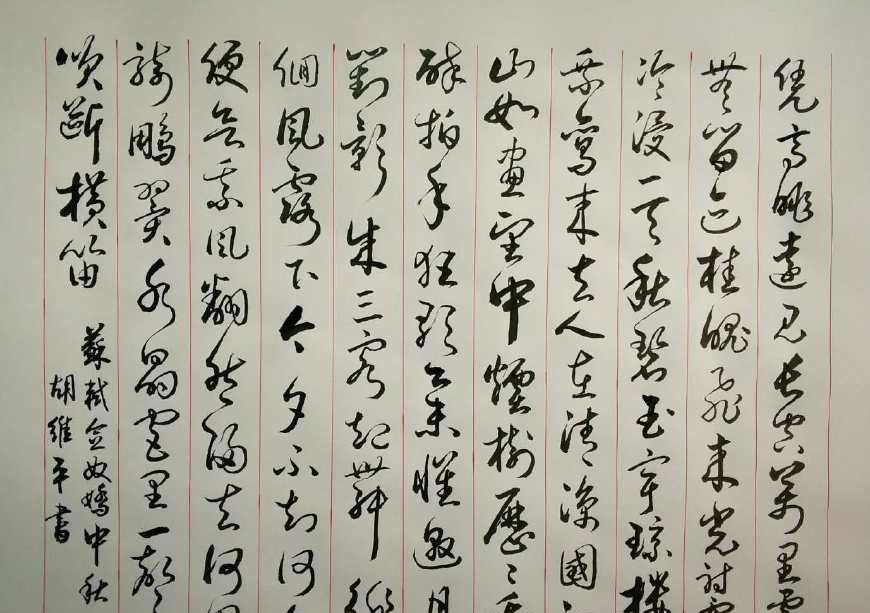 凭高眺遠見長空萬里雲
無留迹桂魄飛來光射處
冷浸一天秋碧玉宇瓊樓
乘鸞來去人在清涼國
山如畫望中煙樹歷々
醉拍手狂歌舉杯邀月
對影成三客起舞徘
徊風露下今夕不知何
便欲乘風翻然歸去何用
騎鵬翼水晶宮里一聲
吹斷橫笛
蘇軾念奴嬌中秋
胡維平書